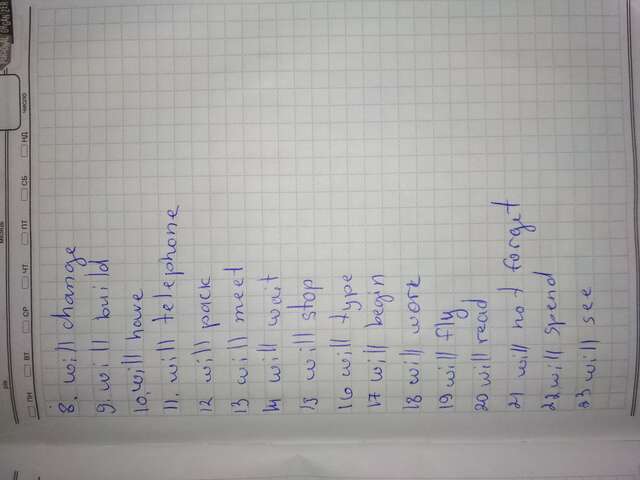 PERSONAL ORGANIZER
ЧИСЛО
МЕСЯЦ
ПН ВТ СР ЧТ ПТ СБ НД
8. will change
9. will build
10. will have
11. will telephone
12 will pack
13 will meet
14 will wait
15 will stop
16 will type
17 will begin
18 will work
19 will fly
20 will read
21 will not forget
22 will spend
23 will see